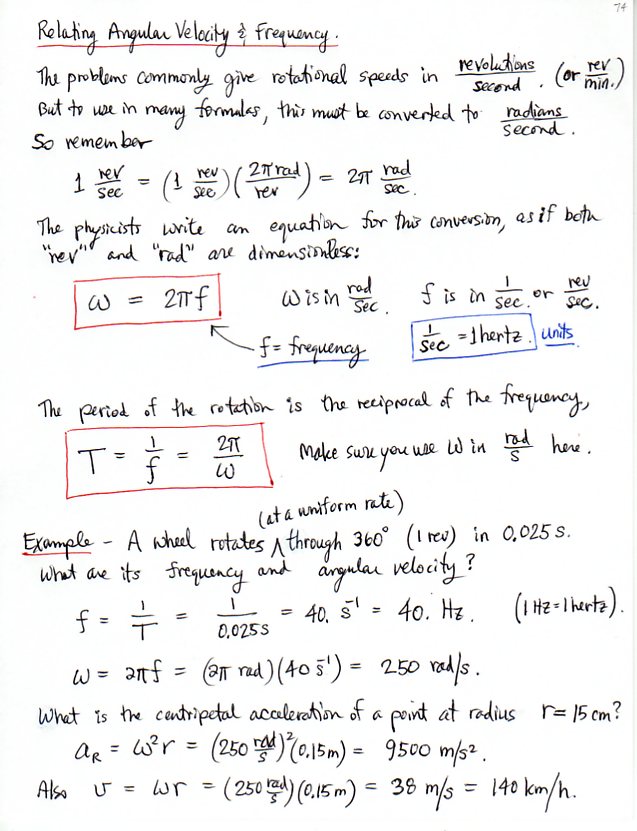 74
Relating Angular Velocity & Frequency.
The problems commonly give rotational speeds in revolutions/second. (or rev/min.)
But to use in many formulas, this must be converted to radians/second.
So remember
1 rev/sec = (1 rev/sec)(2π rad/rev) = 2π rad/sec.
The physicists write an equation for this conversion, as if both
"rev" and "rad" are dimensionless:
ω = 2πf ω is in rad/sec. f is in 1/sec. or rev/sec.
f = frequency 1/sec = 1 hertz. units
The period of the rotation is the reciprocal of the frequency,
T = 1/f = 2π/ω Make sure you use ω in rad/s here.
(at a uniform rate)
Example - A wheel rotates ∧ through 360° (1 rev) in 0.025 s.
What are its frequency and angular velocity?
f = 1/T = 1/0.025s = 40. s⁻¹ = 40. Hz. (1 Hz = 1 hertz).
ω = 2πf = (2π rad)(40 s⁻¹) = 250 rad/s.
What is the centripetal acceleration of a point at radius r = 15 cm?
a_R = ω²r = (250 rad/s)²(0.15m) = 9500 m/s².
Also v = ωr = (250 rad/s)(0.15m) = 38 m/s = 140 km/h.